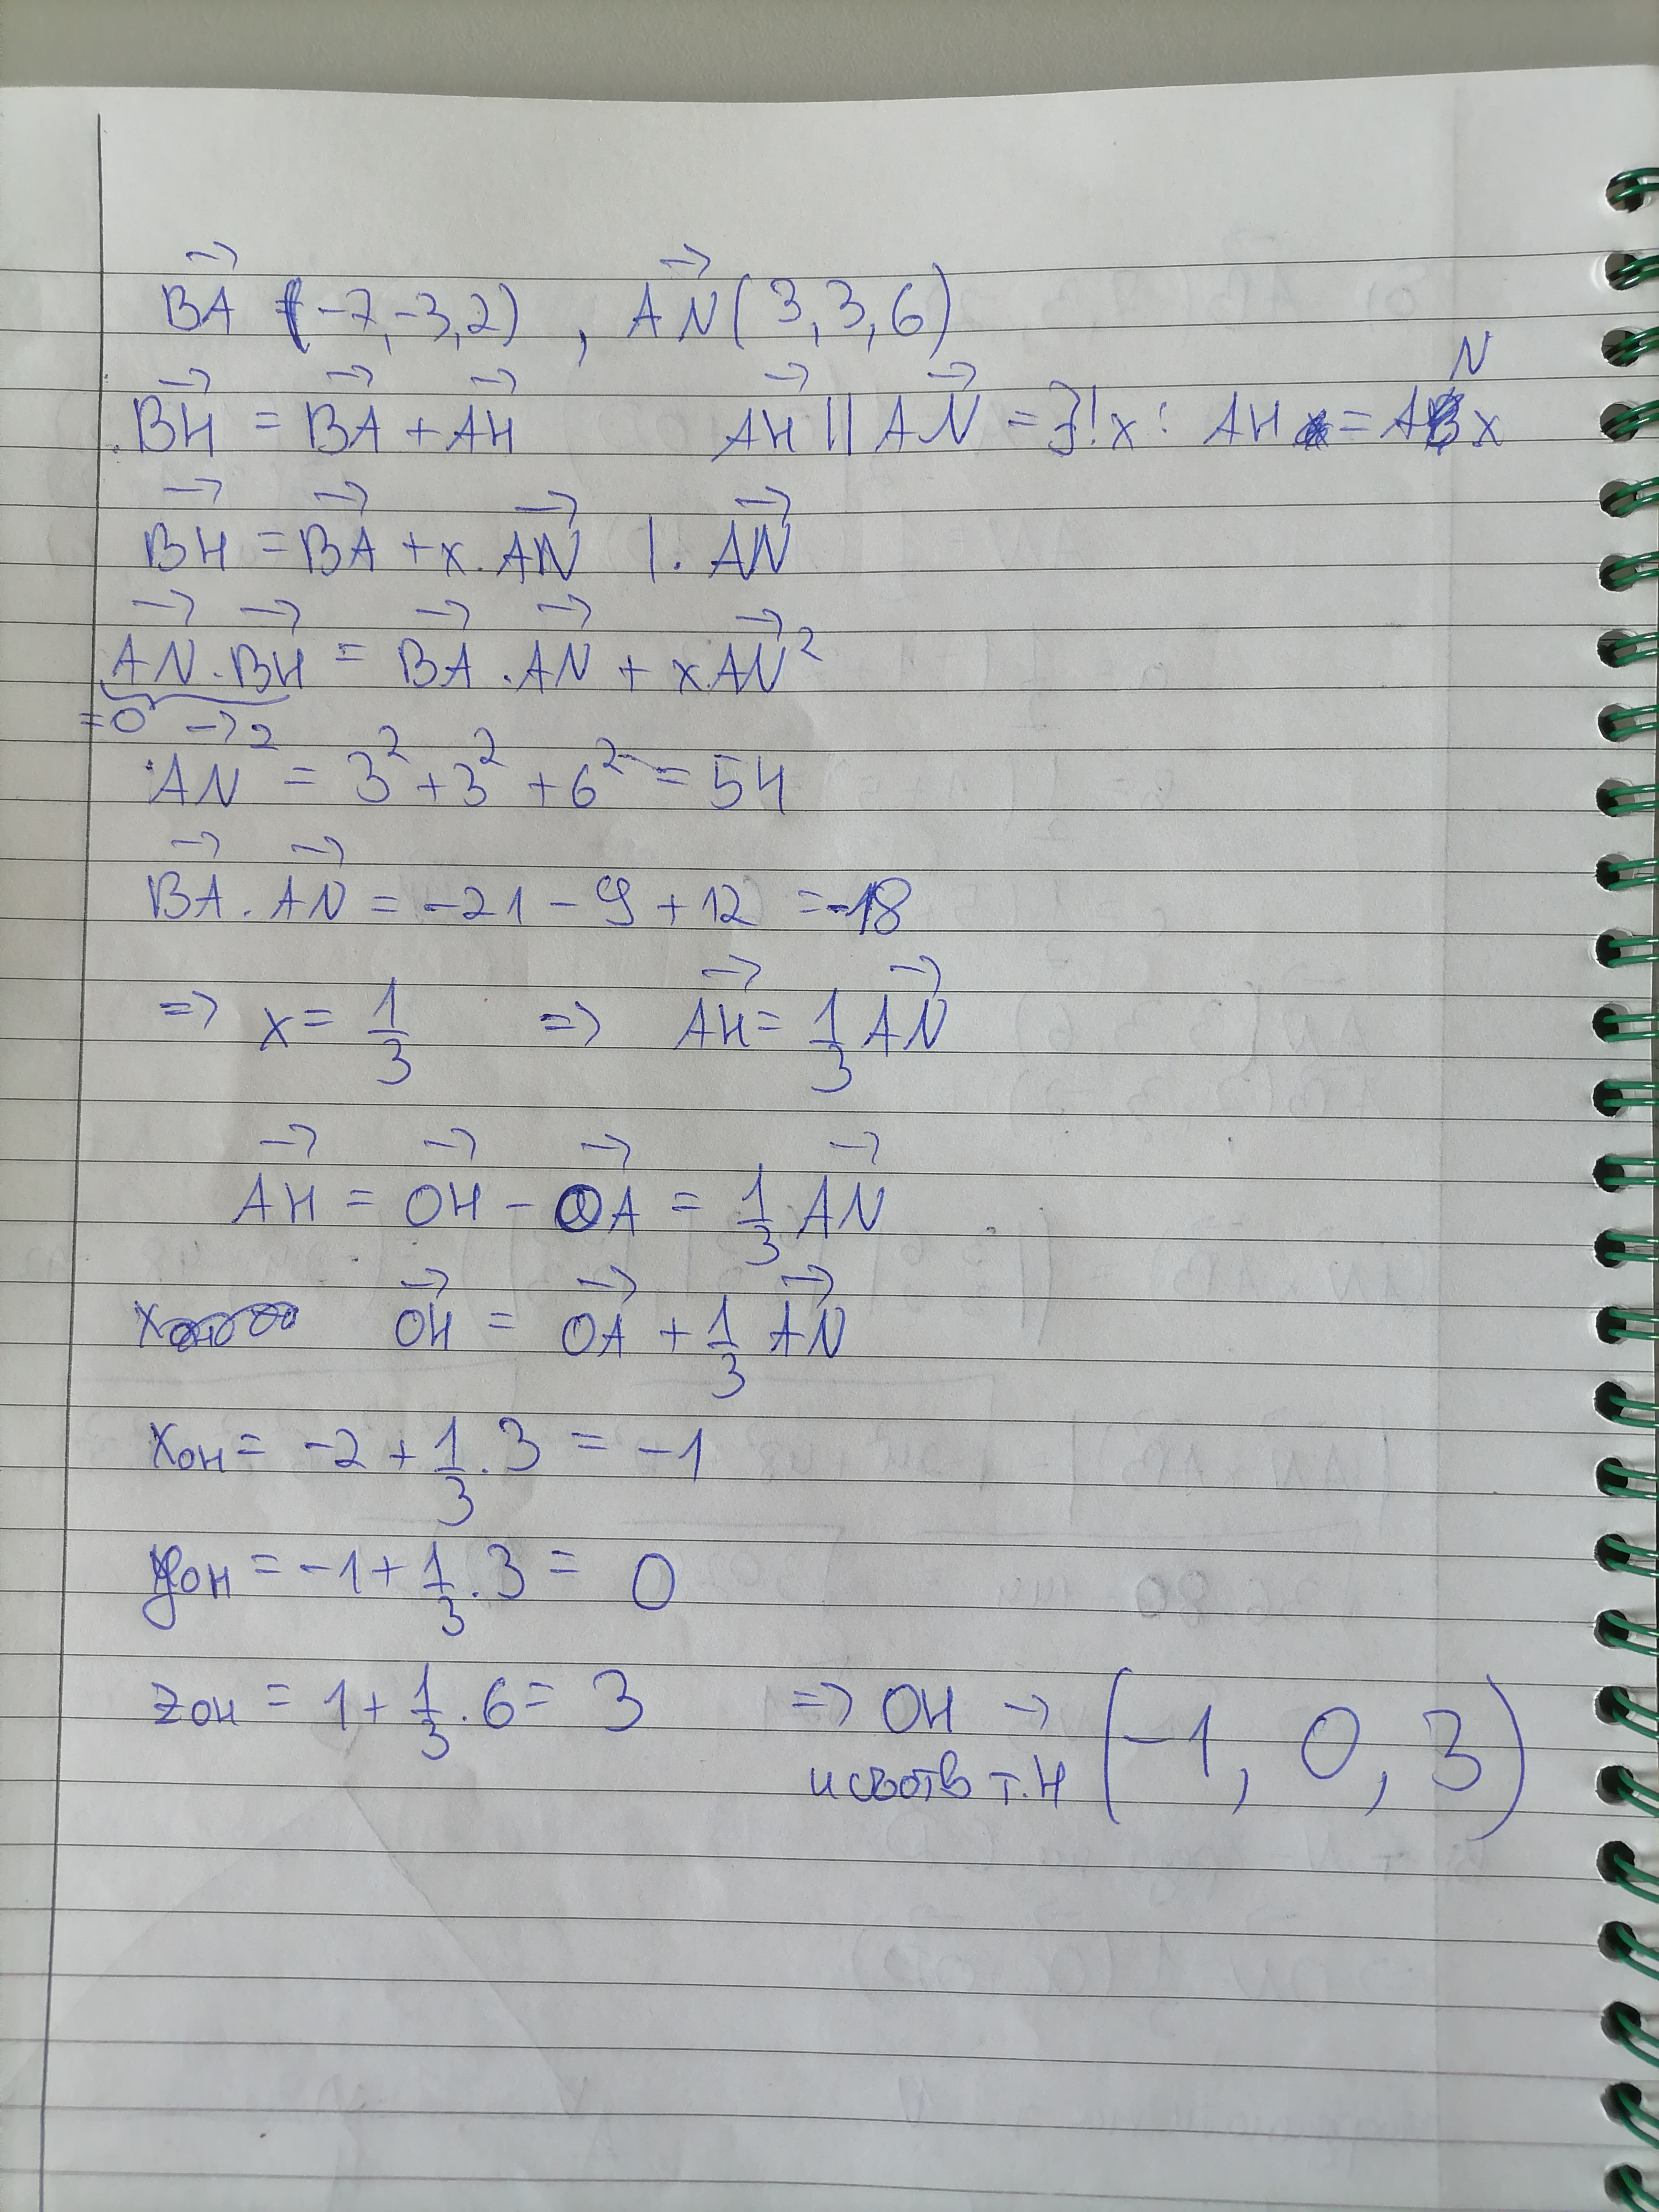 BA→ (-7,-3,2) , AN→ (3,3,6)
BH→ = BA→ + AH→   AH→ || AN→ = ∃! x : AH = AN x
BH→ = BA→ + x . AN→ | . AN→
AN→ . BH→ = BA→ . AN→ + x.AN→²
= 0
AN→² = 3² + 3² + 6² = 54
BA→ . AN→ = -21 - 9 + 12 = -18
=> x = 1/3 => AH→ = 1/3 AN→
AH→ = OH→ - OA→ = 1/3 AN→
OH→ = OA→ + 1/3 AN→
xOH = -2 + 1/3 . 3 = -1
yOH = -1 + 1/3 . 3 = 0
zOH = 1 + 1/3 . 6 = 3 => OH → (-1, 0, 3)
и съотв т. H